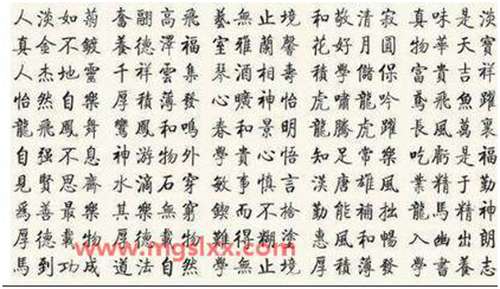 人淡如菊奮翮高飛藝無止境和敬清寂真味是淡
真金不鍍養德澤福室雅蘭馨花好月圓物華天寶
人杰地靈千祥雲集琴酒相壽積學儲保富貴吉祥
怡然自樂厚積薄發心曠神怡虎嘯龍吟鳶飛魚躍
龍飛鳳舞鸞鳳和鳴春和景明龍騰虎躍長風萬里
自强不息神游物外學貴心悟知足常樂吃虧是福
見賢思齋水滴石穿敏事慎言漢唐雄風業精于勤
為善最樂其樂無窮鍥而不捨勤能補拙龍馬精神
厚德載物厚德載物難得糊塗惠風和暢入幽出朗
馬到功成道法自然學無止境厚積薄發學書養志
www.mgslxx.com